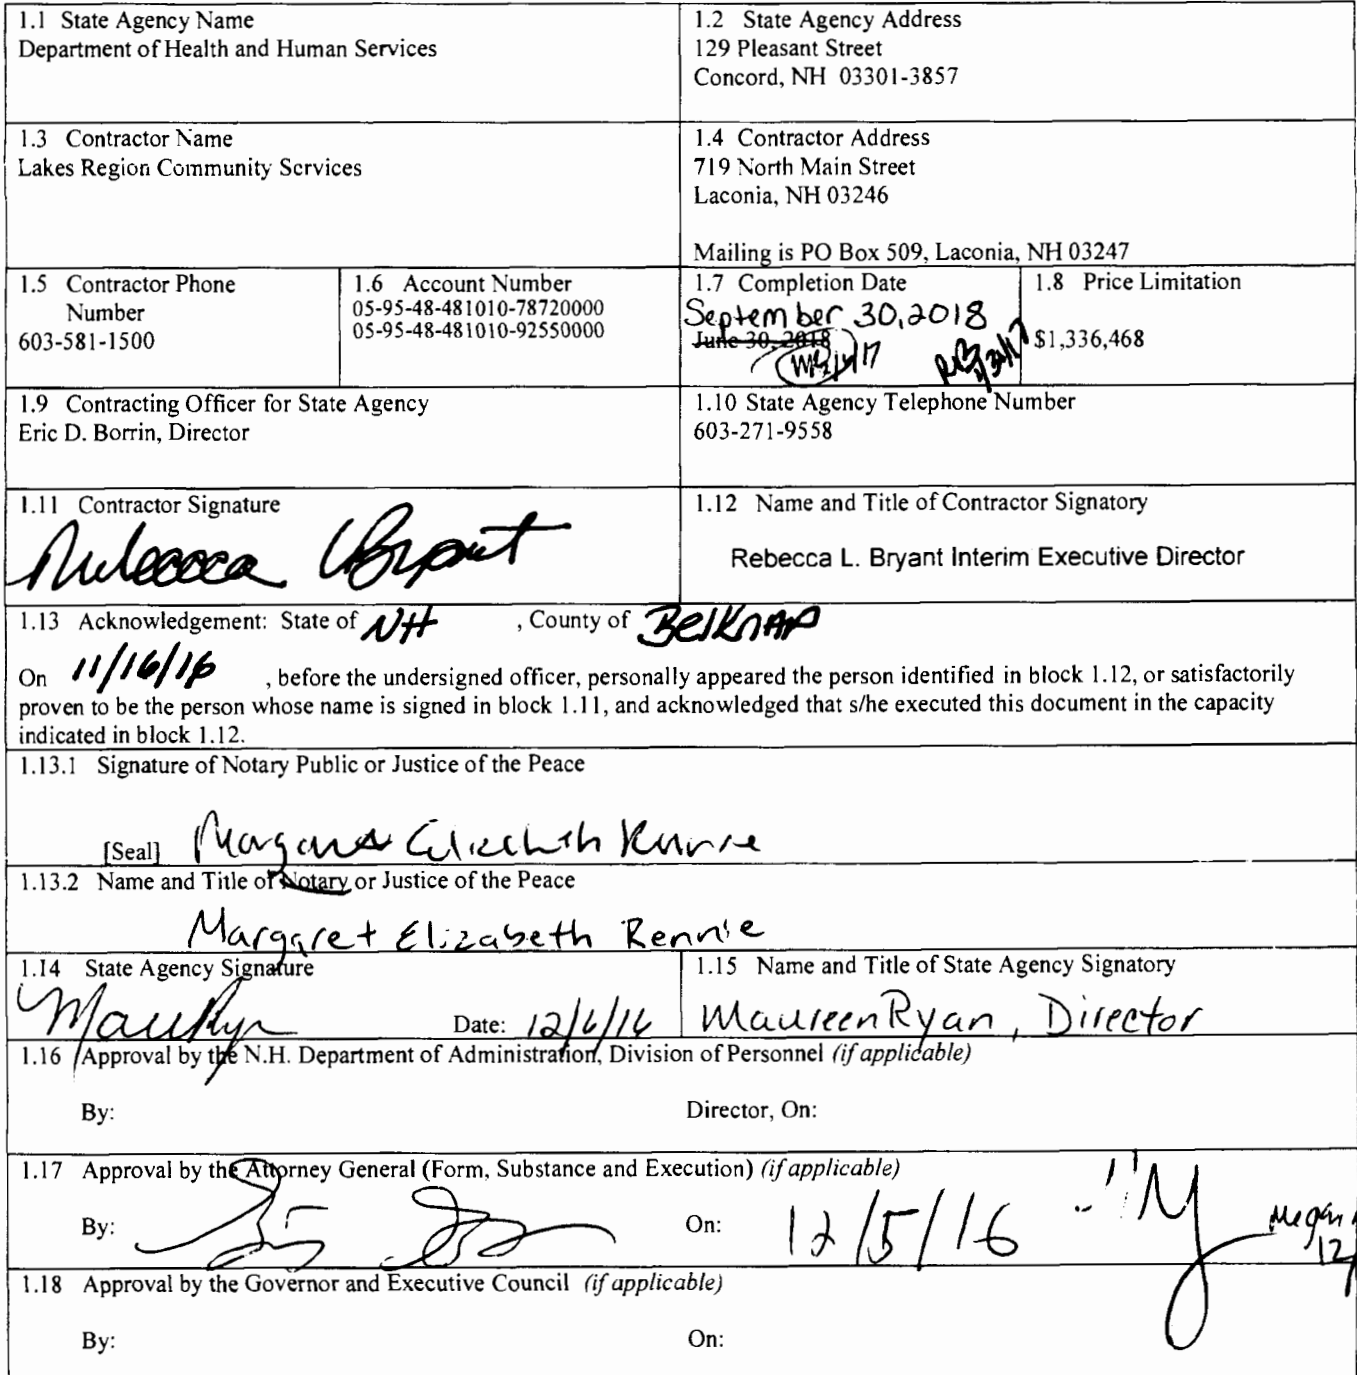 1.1 State Agency Name
Department of Health and Human Services
1.2 State Agency Address
129 Pleasant Street
Concord, NH 03301-3857
1.3 Contractor Name
Lakes Region Community Services
1.4 Contractor Address
719 North Main Street
Laconia, NH 03246
Mailing is PO Box 509, Laconia, NH 03247
1.5 Contractor Phone
Number
603-581-1500
1.6 Account Number
05-95-48-481010-78720000
05-95-48-481010-92550000
1.7 Completion Date
September 30, 2018
June 30, 2018
1.8 Price Limitation
$1,336,468
1.9 Contracting Officer for State Agency
Eric D. Borrin, Director
1.10 State Agency Telephone Number
603-271-9558
1.11 Contractor Signature
Rebecca L Bryant
1.12 Name and Title of Contractor Signatory
Rebecca L. Bryant Interim Executive Director
1.13 Acknowledgement: State of NH , County of Belknap
On 11/16/16 , before the undersigned officer, personally appeared the person identified in block 1.12, or satisfactorily
proven to be the person whose name is signed in block 1.11, and acknowledged that s/he executed this document in the capacity
indicated in block 1.12.
1.13.1 Signature of Notary Public or Justice of the Peace
[Seal] Margaret Elizabeth Rennie
1.13.2 Name and Title of Notary or Justice of the Peace
Margaret Elizabeth Rennie
1.14 State Agency Signature
Date: 12/6/16
1.15 Name and Title of State Agency Signatory
Maureen Ryan, Director
1.16 Approval by the N.H. Department of Administration, Division of Personnel (if applicable)
By: Director, On:
1.17 Approval by the Attorney General (Form, Substance and Execution) (if applicable)
By: On: 12/5/16
Megan
12/
1.18 Approval by the Governor and Executive Council (if applicable)
By: On: